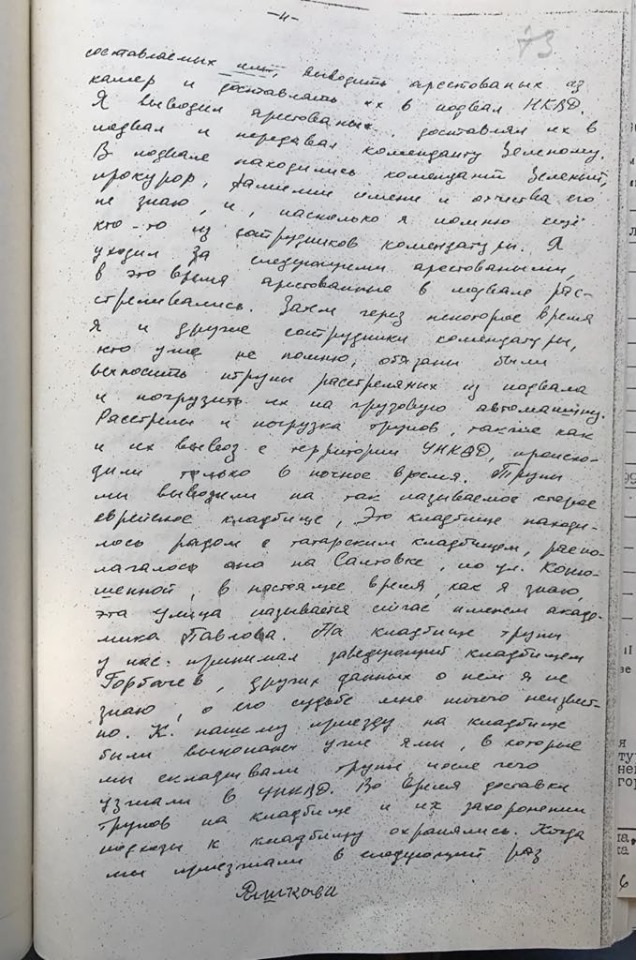 -4-
73
составляемых ими, выводить арестованых из
камер и доставлять их в подвал НКВД.
Я выводил арестованых, доставлял их в
подвал и передавал коменданту Зеленому.
В подвале находились комендант Зеленый,
прокурор, фамилии имени и отчества его
не знаю, и, насколько я помню ещё
кто-то из сотрудников комендатуры. Я
уходил за следующими арестоваными,
в это время арестованные в подвале рас-
стреливались. Затем через некоторое время
я и другие сотрудники комендатуры,
кто уже не помню, обязаны были
выносить трупы расстреляных из подвала
и погрузить их на грузовую автомашину.
Расстрелы и погрузка трупов, также как
и их вывоз с территории УНКВД, происхо-
дили только в ночное время. Трупы
мы вывозили на так называемое старое
еврейское кладбище, Это кладбище находи-
лось рядом с татарским кладбищем, распо-
лагалось оно на Салтовке, по ул. Коню-
шенной, в настоящее время, как я знаю,
эта улица называется сейчас именем акаде-
мика Павлова. На кладбище трупы
у нас принимал заведующий кладбищем
Горбачев, других данных о нем я не
знаю, о его судьбе мне ничего неизвест-
но. К нашему приезду на кладбище
были выкопаны уже ямы, в которые
мы складывали трупы после чего
уезжали в УНКВД. Во время доставки
трупов на кладбище и их захоронении
подходы к кладбищу охранялись. Когда
мы приезжали в следующий раз